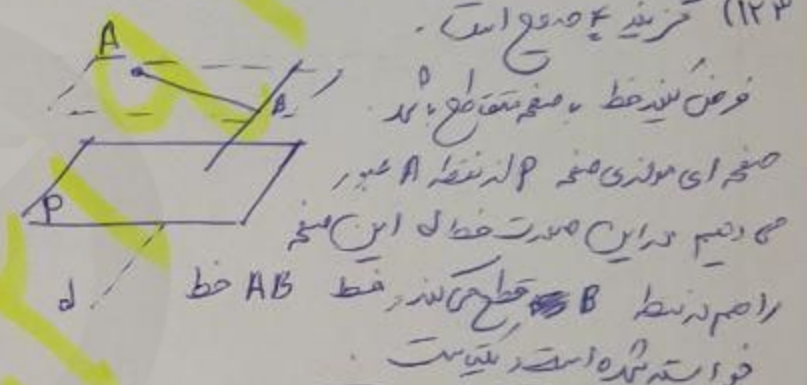 ۱۲۳) گزینه ۴ صحیح است.
فرض کنید خط با صفحه P متقاطع باشد
صفحه ای موازی صفحه P از نقطه A عبور
می دهیم در این صورت خط d این صفحه
را هم در نقطه B قطع می کند و خط AB خط
خواسته شده است و یکتاست.
A
B
P
d